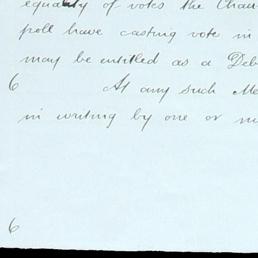 equality of votes the Chair
poll have casting vote in
may be entitled as a Deb
6 At any such Me
in writing by one or m
6